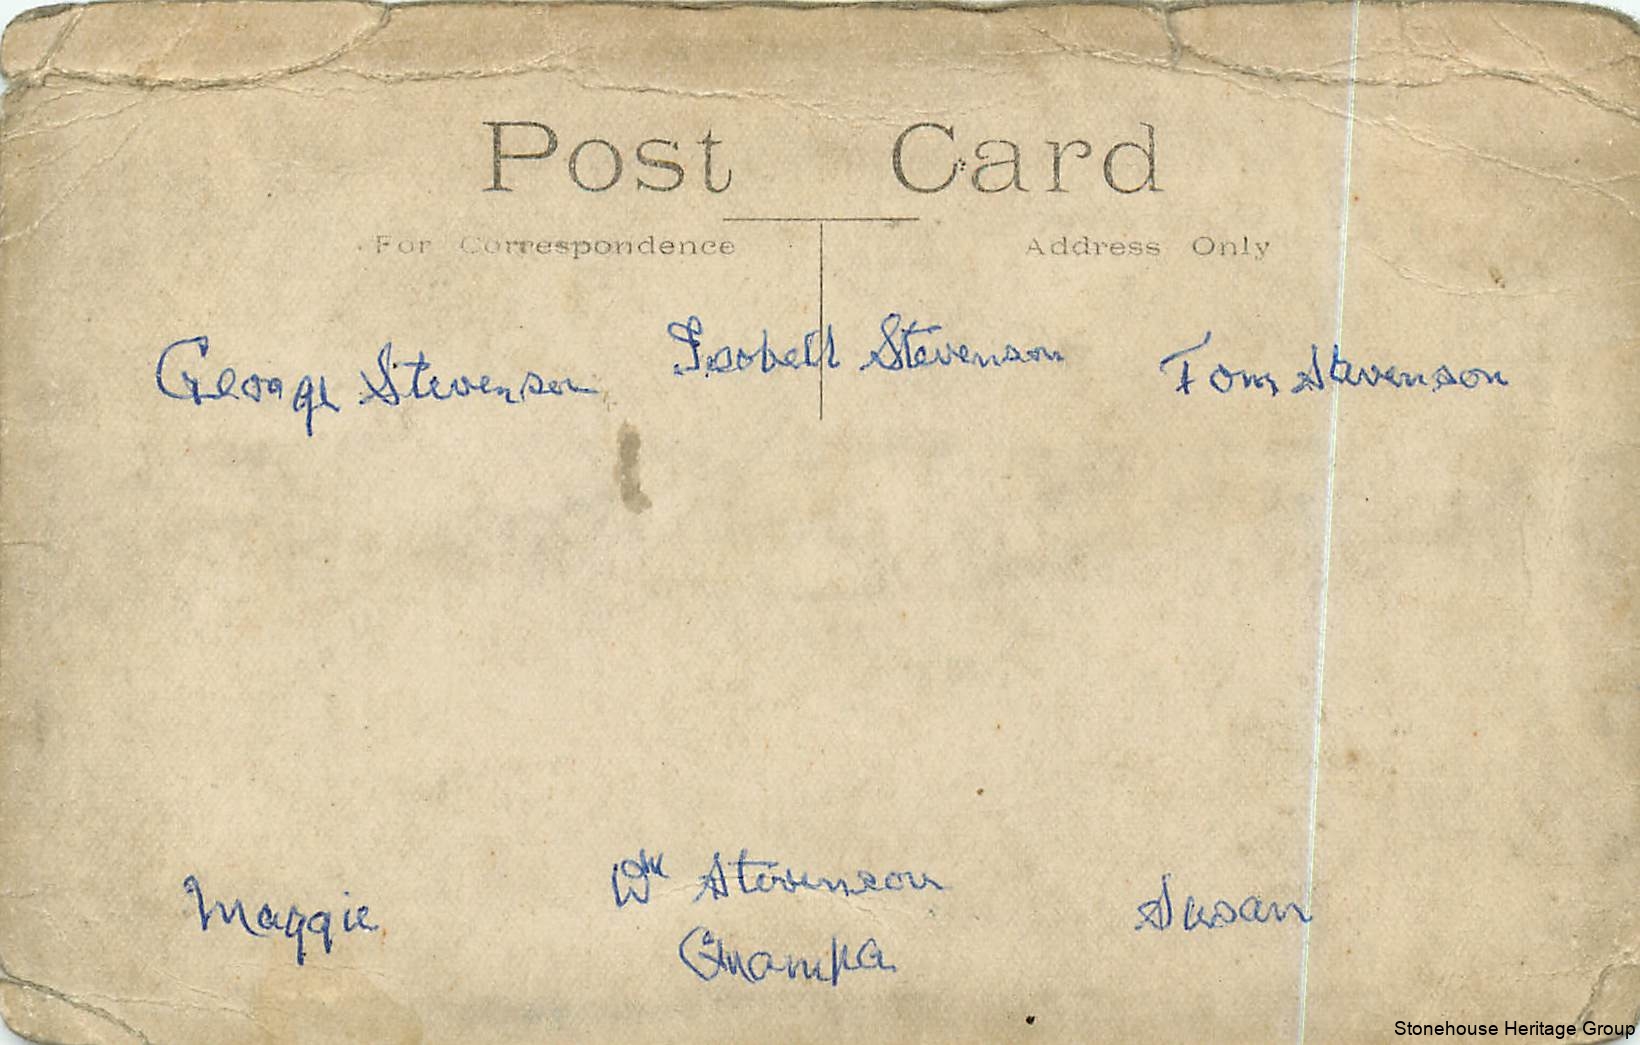 Post Card
For Correspondence Address Only
George Stevenson Isobell Stevenson Tom Stevenson
Maggie Wm Stevenson Susan
Grampa
Stonehouse Heritage Group